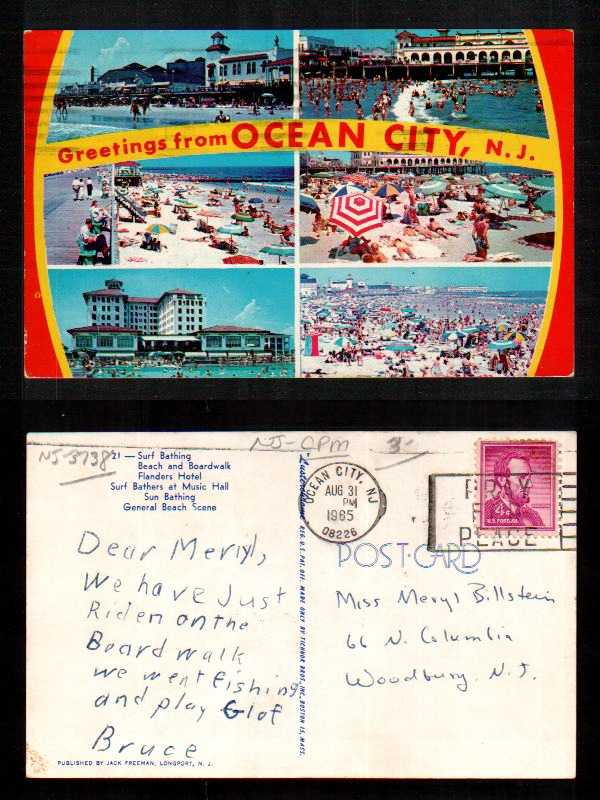 Greetings from OCEAN CITY, N.J.
NJ-3738
NJ-CPM 3-
21 — Surf Bathing
Beach and Boardwalk
Flanders Hotel
Surf Bathers at Music Hall
Sun Bathing
General Beach Scene
Dear Merryl,
We have Just
Riden on the
Board walk
we went fishing
and play Glof
Bruce
PUBLISHED BY JACK FREEMAN, LONGPORT, N. J.
REG. U. S. PAT. OFF. MADE ONLY BY TICHNOR BROS., INC., BOSTON 15, MASS.
OCEAN CITY, NJ
AUG 31
PM
1965
08226
PRAY
PEACE
4¢
U.S. POSTAGE
POST CARD
Miss Meryl Billstein
66 N. Columbia
Woodbury, N. J.